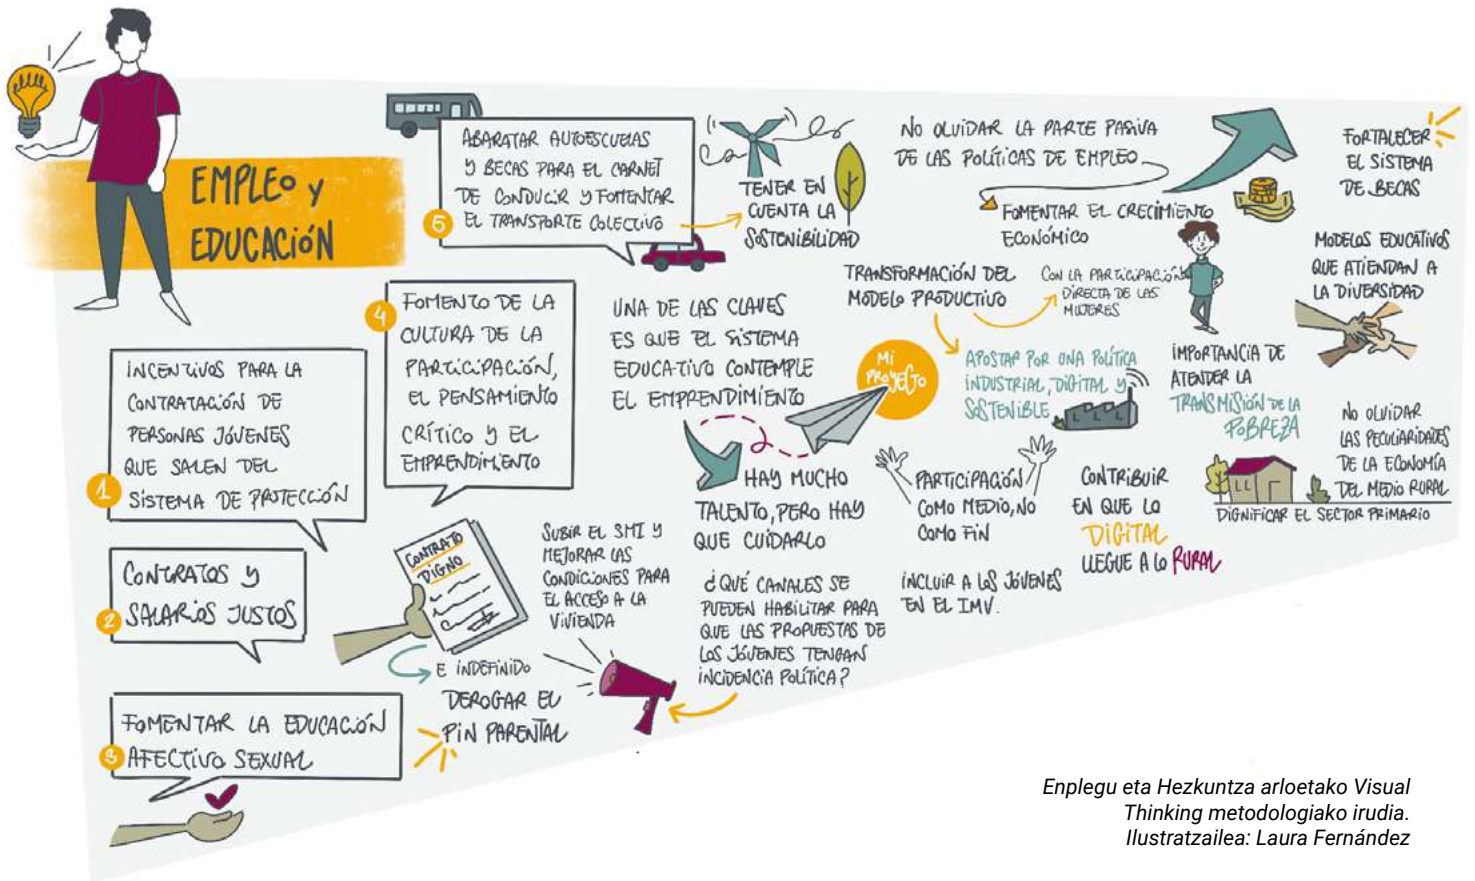 EMPLEO y
EDUCACIÓN
1
INCENTIVOS PARA LA
CONTRATACIÓN DE
PERSONAS JÓVENES
QUE SALEN DEL
SISTEMA DE PROTECCIÓN
2
CONTRATOS Y
SALARIOS JUSTOS
3
FOMENTAR LA EDUCACIÓN
AFECTIVO SEXUAL
4
FOMENTO DE LA
CULTURA DE LA
PARTICIPACIÓN,
EL PENSAMIENTO
CRÍTICO Y EL
EMPRENDIMIENTO
5
ABARATAR AUTOESCUELAS
Y BECAS PARA EL CARNET
DE CONDUCIR Y FOMENTAR
EL TRANSPORTE COLECTIVO
TENER EN
CUENTA LA
SOSTENIBILIDAD
CONTRATO
DIGNO
E INDEFINIDO
DEROGAR EL
PIN PARENTAL
SUBIR EL SMI Y
MEJORAR LAS
CONDICIONES PARA
EL ACCESO A LA
VIVIENDA
UNA DE LAS CLAVES
ES QUE EL SISTEMA
EDUCATIVO CONTEMPLE
EL EMPRENDIMIENTO
HAY MUCHO
TALENTO, PERO HAY
QUE CUIDARLO
¿QUÉ CANALES SE
PUEDEN HABILITAR PARA
QUE LAS PROPUESTAS DE
LOS JÓVENES TENGAN
INCIDENCIA POLÍTICA?
MI
PROYECTO
NO OLVIDAR LA PARTE PASIVA
DE LAS POLÍTICAS DE EMPLEO
FOMENTAR EL CRECIMIENTO
ECONÓMICO
TRANSFORMACIÓN DEL
MODELO PRODUCTIVO
CON LA PARTICIPACIÓN
DIRECTA DE LAS
MUJERES
APOSTAR POR UNA POLÍTICA
INDUSTRIAL, DIGITAL Y
SOSTENIBLE
PARTICIPACIÓN
COMO MEDIO, NO
COMO FIN
INCLUIR A LOS JÓVENES
EN EL IMV.
CONTRIBUIR
EN QUE LO
DIGITAL
LLEGUE A LO RURAL
IMPORTANCIA DE
ATENDER LA
TRANSMISIÓN DE LA
POBREZA
FORTALECER
EL SISTEMA
DE BECAS
MODELOS EDUCATIVOS
QUE ATIENDAN A
LA DIVERSIDAD
NO OLVIDAR
LAS PECULIARIDADES
DE LA ECONOMÍA
DEL MEDIO RURAL
DIGNIFICAR EL SECTOR PRIMARIO
Enplegu eta Hezkuntza arloetako Visual
Thinking metodologiako irudia.
Ilustratzailea: Laura Fernández